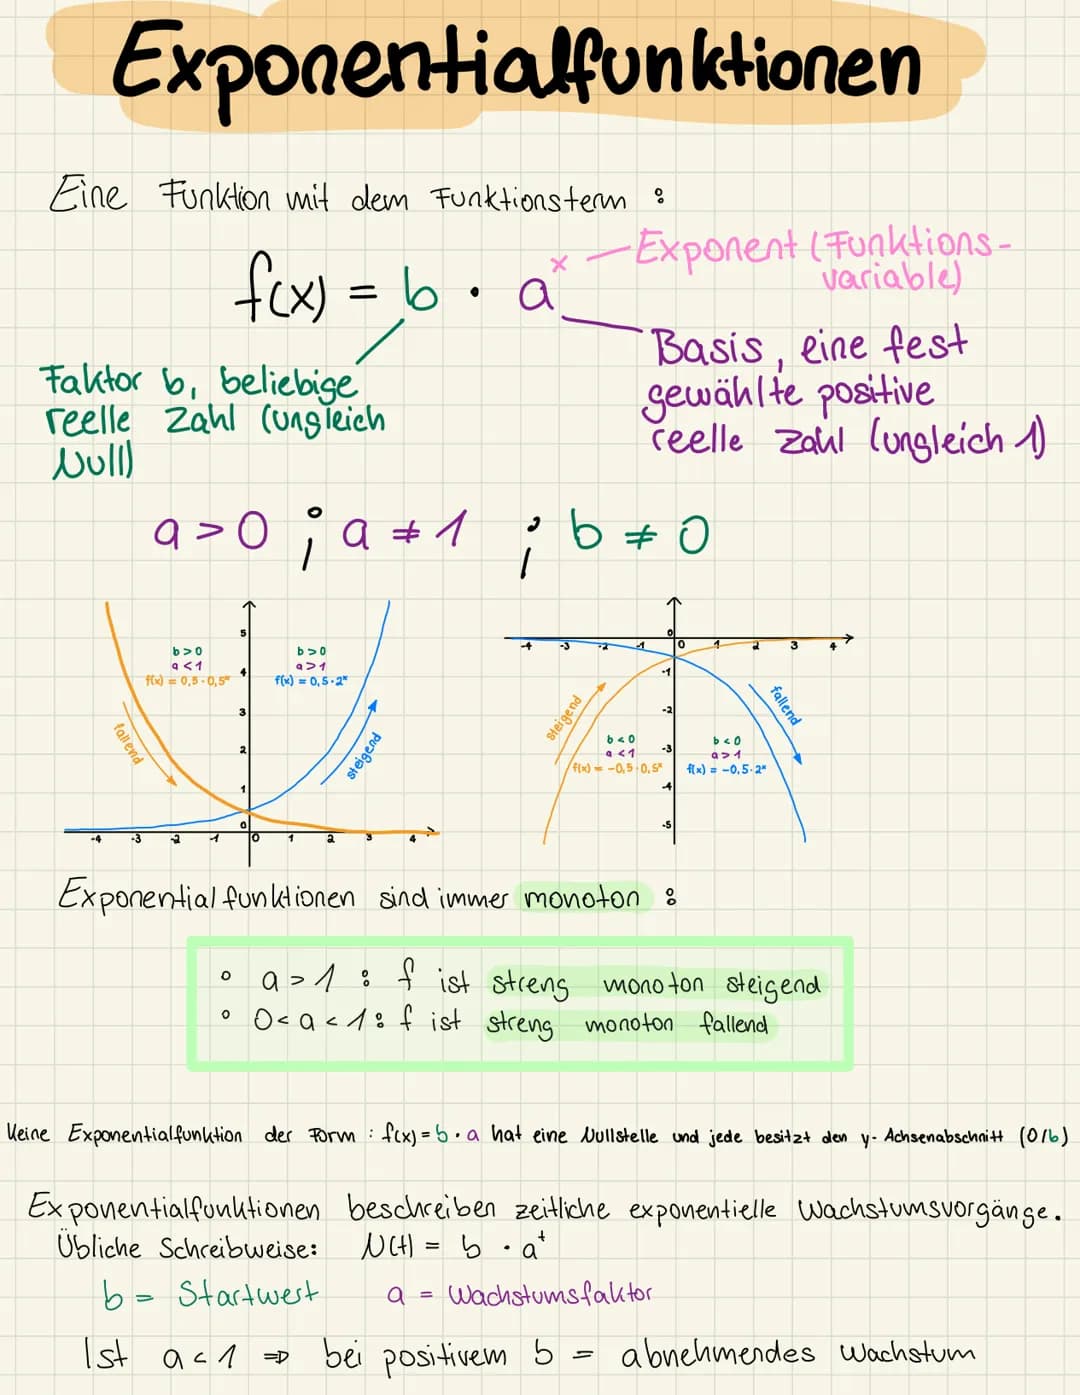 Exponentialfunktionen
Eine Funktion mit dem Funktionsterm :
f(x) = b · aˣ
Exponent (Funktions-
variable)
Faktor b, beliebige
reelle Zahl (ungleich
Null)
Basis, eine fest
gewählte positive
reelle Zahl (ungleich 1)
a > 0 ; a ≠ 1 ; b ≠ 0
b > 0
a < 1
f(x) = 0,5 · 0,5ˣ
fallend
b > 0
a > 1
f(x) = 0,5 · 2ˣ
steigend
5
4
3
2
1
0
-4 -3 -2 -1 0 1 2 3 4
steigend
b < 0
a < 1
f(x) = -0,5 · 0,5ˣ
fallend
b < 0
a > 1
f(x) = -0,5 · 2ˣ
0
-4 -3 -2 -1 0 1 2 3 4
-1
-2
-3
-4
-5
Exponentialfunktionen sind immer monoton :
° a > 1 : f ist streng monoton steigend
° 0 < a < 1 : f ist streng monoton fallend
Keine Exponentialfunktion der Form : f(x) = b · a hat eine Nullstelle und jede besitzt den y-Achsenabschnitt (0/b)
Exponentialfunktionen beschreiben zeitliche exponentielle Wachstumsvorgänge.
Übliche Schreibweise: N(t) = b · aᵗ
b = Startwert a = Wachstumsfaktor
Ist a < 1 ⇒ bei positivem b = abnehmendes Wachstum